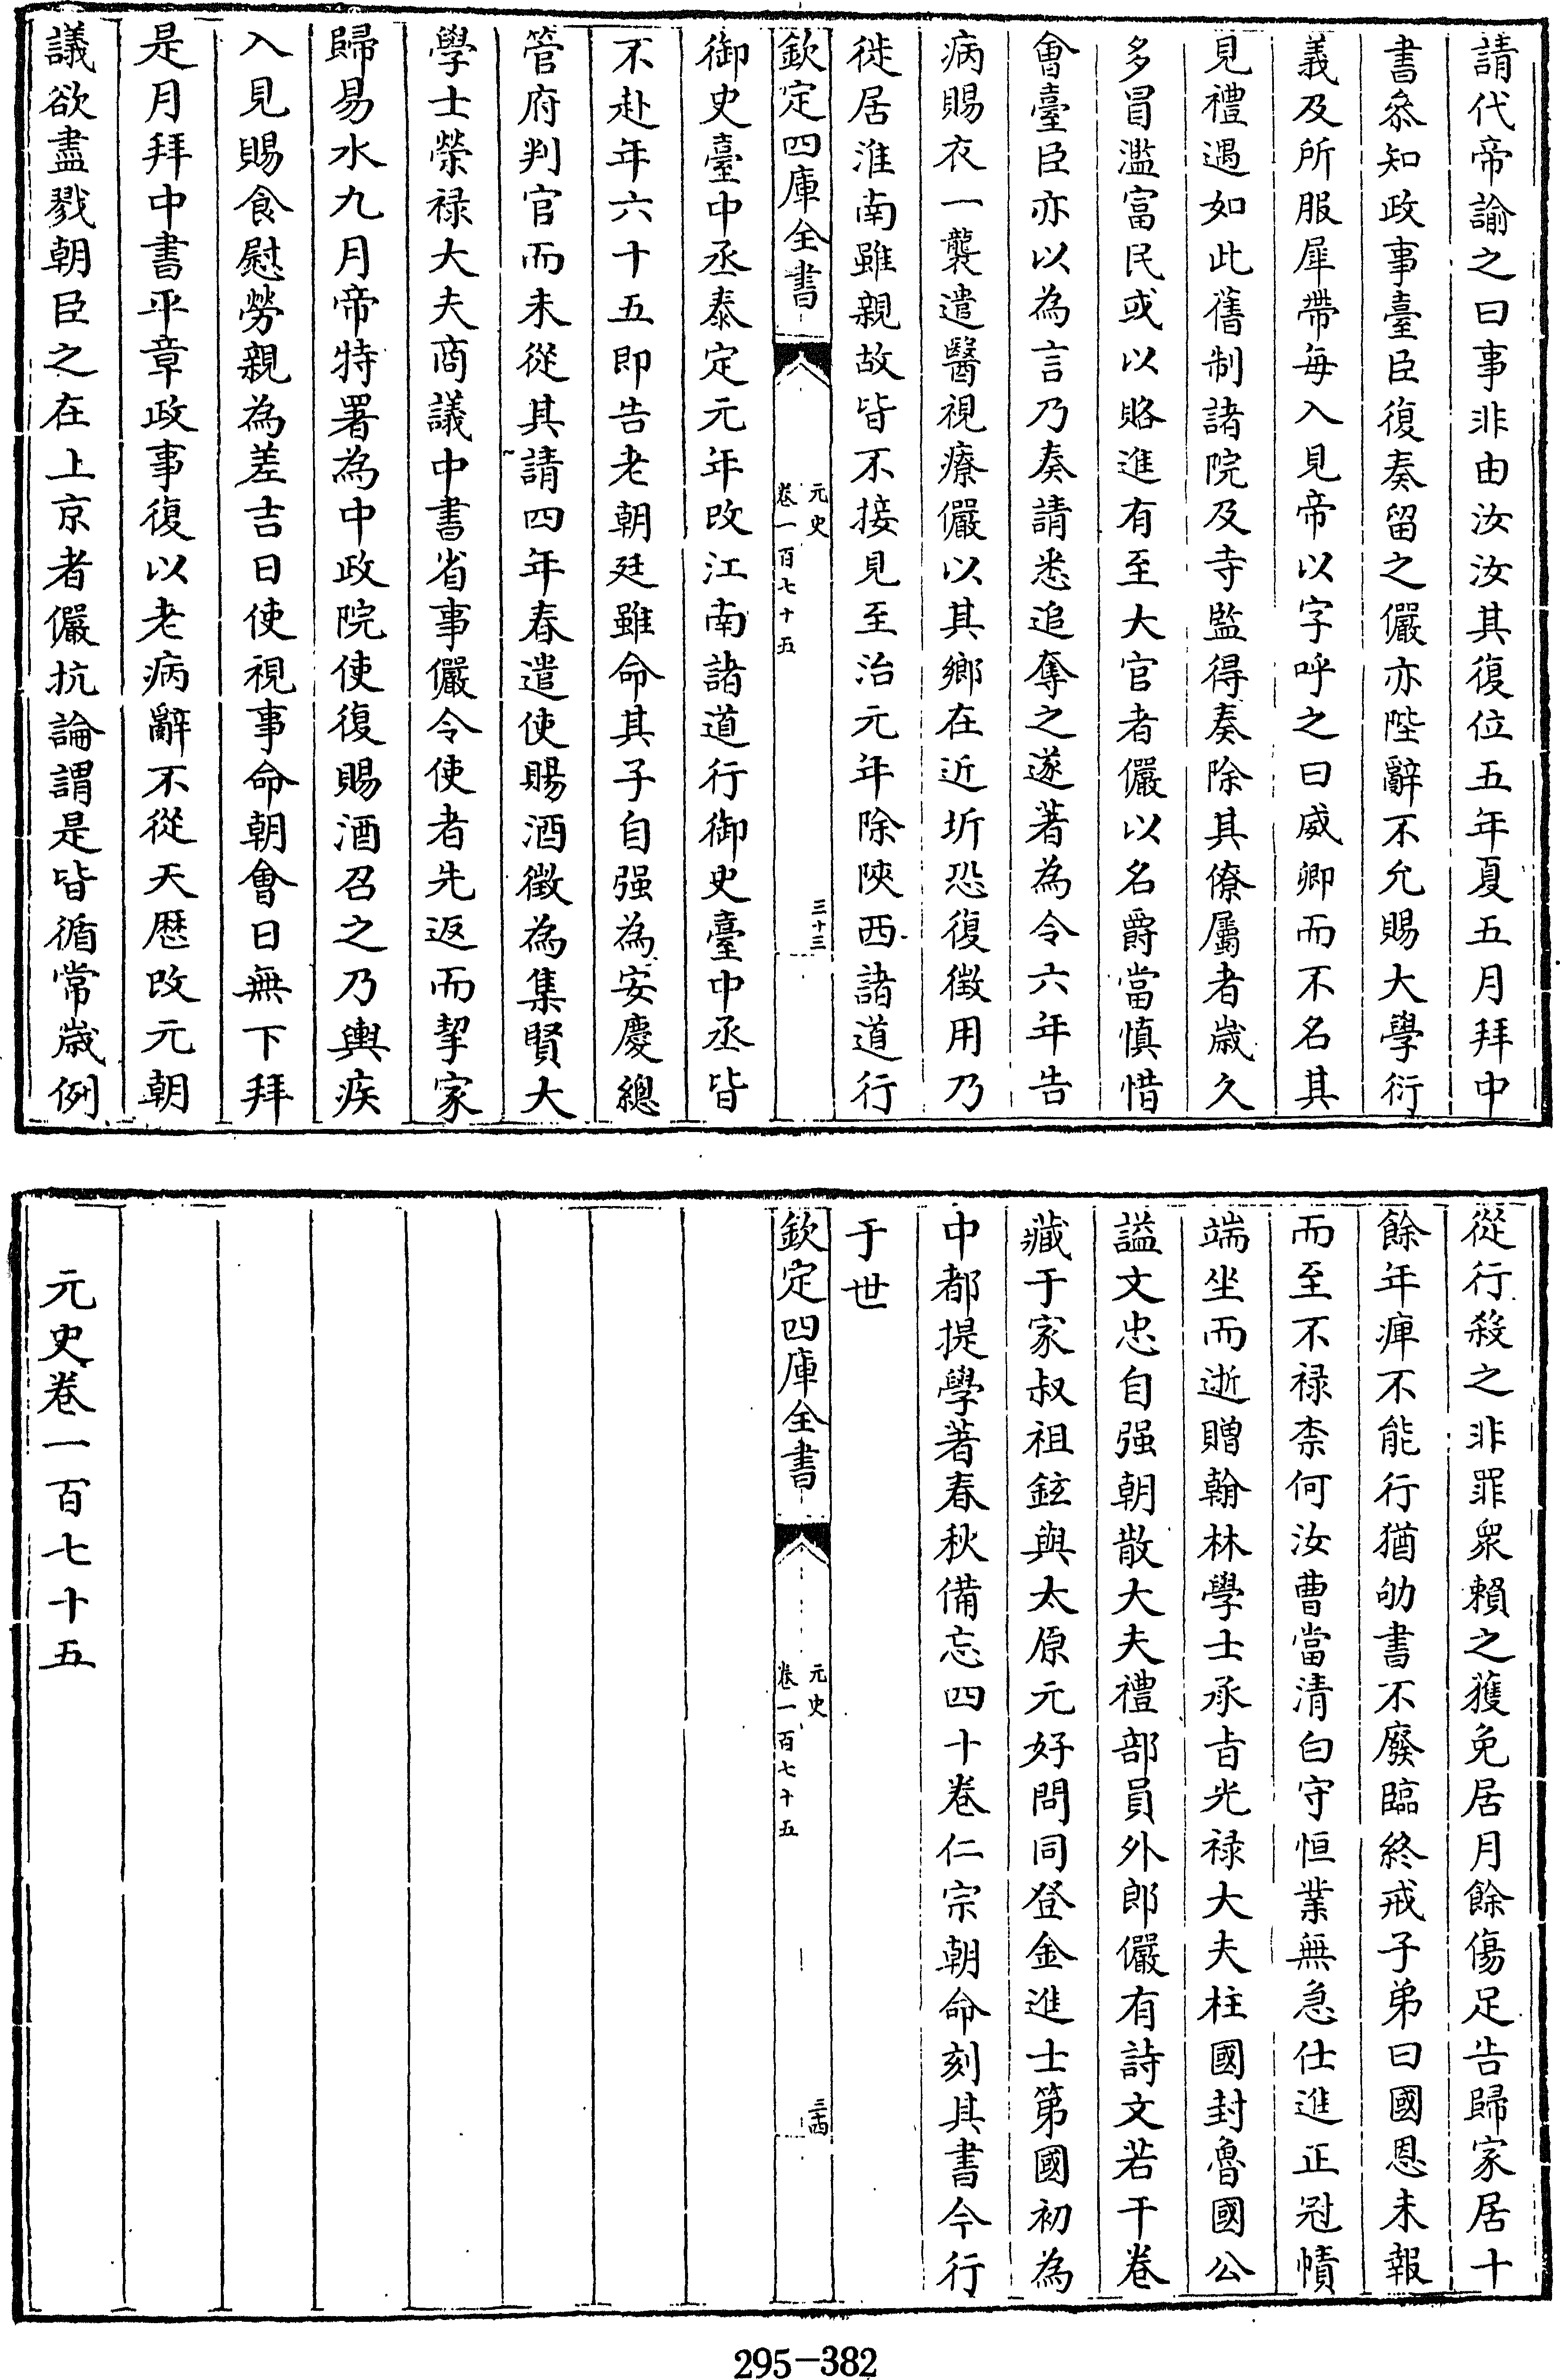 請代帝諭之曰事非由汝汝其復位五年夏五月拜中
書叅知政事臺臣復奏留之儼亦陛辭不允賜大學衍
義及所服犀帶每入見帝以字呼之曰威卿而不名其
見禮遇如此舊制諸院及寺監得奏除其僚屬者歲久
多冒濫富民或以賂進有至大官者儼以名爵當慎惜
會臺臣亦以為言乃奏請悉追奪之遂著為令六年告
病賜衣一襲遣醫視療儼以其鄉在近圻恐復徵用乃
徙居淮南雖親故皆不接見至治元年除陝西諸道行
欽定四庫全書
元史
卷一百七十五
三十三
御史臺中丞泰定元年改江南諸道行御史臺中丞皆
不赴年六十五即告老朝廷雖命其子自强為安慶總
管府判官而未從其請四年春遣使賜酒徵為集賢大
學士榮禄大夫商議中書省事儼令使者先返而挈家
歸易水九月帝特署為中政院使復賜酒召之乃輿疾
入見賜食慰勞親為差吉日使視事命朝會日無下拜
是月拜中書平章政事復以老病辭不從天厯改元朝
議欲盡戮朝臣之在上京者儼抗論謂是皆循常歲例
從行殺之非罪衆賴之獲免居月餘傷足告歸家居十
餘年痺不能行猶劬書不廢臨終戒子弟曰國恩未報
而至不禄柰何汝曹當清白守恒業無急仕進正冠幘
端坐而逝贈翰林學士承旨光禄大夫柱國封魯國公
謚文忠自强朝散大夫禮部員外郎儼有詩文若干卷
藏于家叔祖鉉與太原元好問同登金進士第國初為
中都提學著春秋備忘四十卷仁宗朝命刻其書今行
于世
欽定四庫全書
元史
卷一百七十五
三十四
元史卷一百七十五
295-382